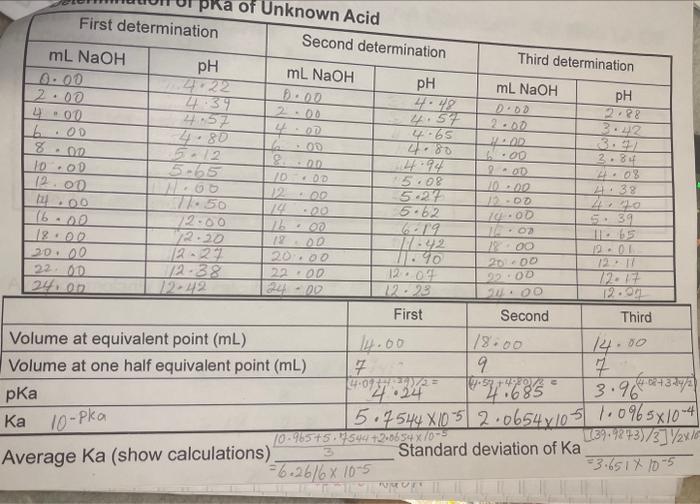 pKa of Unknown Acid
First determination Second determination Third determination
mL NaOH pH mL NaOH pH mL NaOH pH
0.00 4.22 0.00 4.48 0.00 2.88
2.00 4.39 2.00 4.57 2.00 3.42
4.00 4.57 4.00 4.65 4.00 3.71
6.00 4.80 6.00 4.80 6.00 3.84
8.00 5.12 8.00 4.94 8.00 4.08
10.00 5.65 10.00 5.08 10.00 4.38
12.00 11.00 12.00 5.27 12.00 4.70
14.00 11.50 14.00 5.62 14.00 5.39
16.00 12.00 16.00 6.19 16.00 11.65
18.00 12.20 18.00 11.42 18.00 12.01
20.00 12.27 20.00 11.90 20.00 12.11
22.00 12.38 22.00 12.07 22.00 12.17
24.00 12.42 24.00 12.23 24.00
First Second Third
Volume at equivalent point (mL) 14.00 18.00 14.00
Volume at one half equivalent point (mL) 7 9 7
pKa 4.24 4.685 3.96
Ka 10-pka 5.7544 x10-5 2.0654x10-5 1.0965x10-4
Average Ka (show calculations) 10.965+5.7544+2.0654x10-5 / 3 = 6.2616 x 10-5 Standard deviation of Ka = 3.651 x 10-5